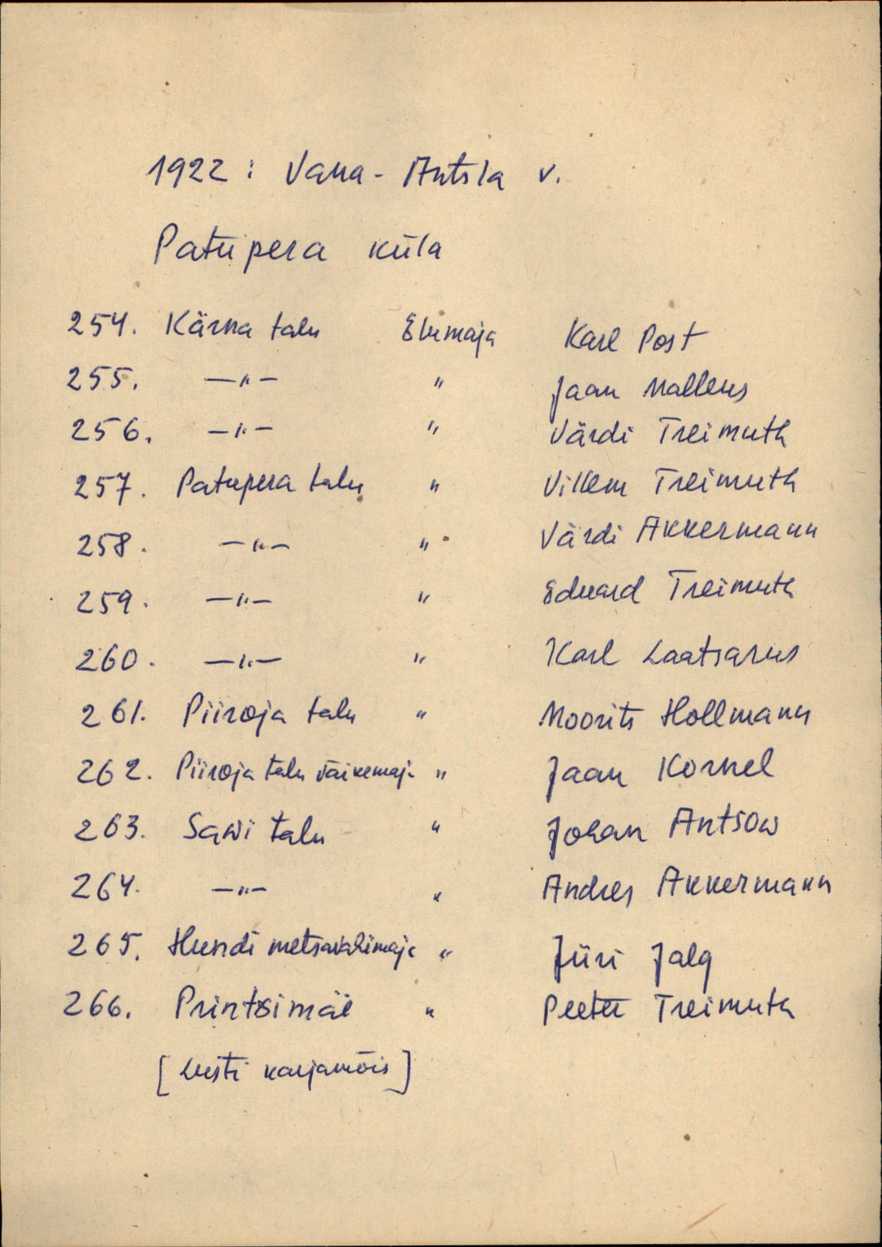 1922: Vana-Antsla v.
Patupera küla
254. Kärna talu Elumaja Karl Post
255. —"— " Jaan Malleus
256. —"— " Värdi Treimuth
257. Patupera talu " Villem Treimuth
258. —"— " Värdi Akkermann
259. —"— " Eduard Treimuth
260. —"— " Karl Laatsarus
261. Piiroja talu " Moorits Hollmann
262. Piiroja talu väikemaja " Jaan Kornel
263. Sawi talu " Johan Antsow
264. —"— " Andres Akkermann
265. Hundi metsavahimaja " Jüri Jalg
266. Printsimäe " Peeter Treimuth
[Lusti karjamõis]